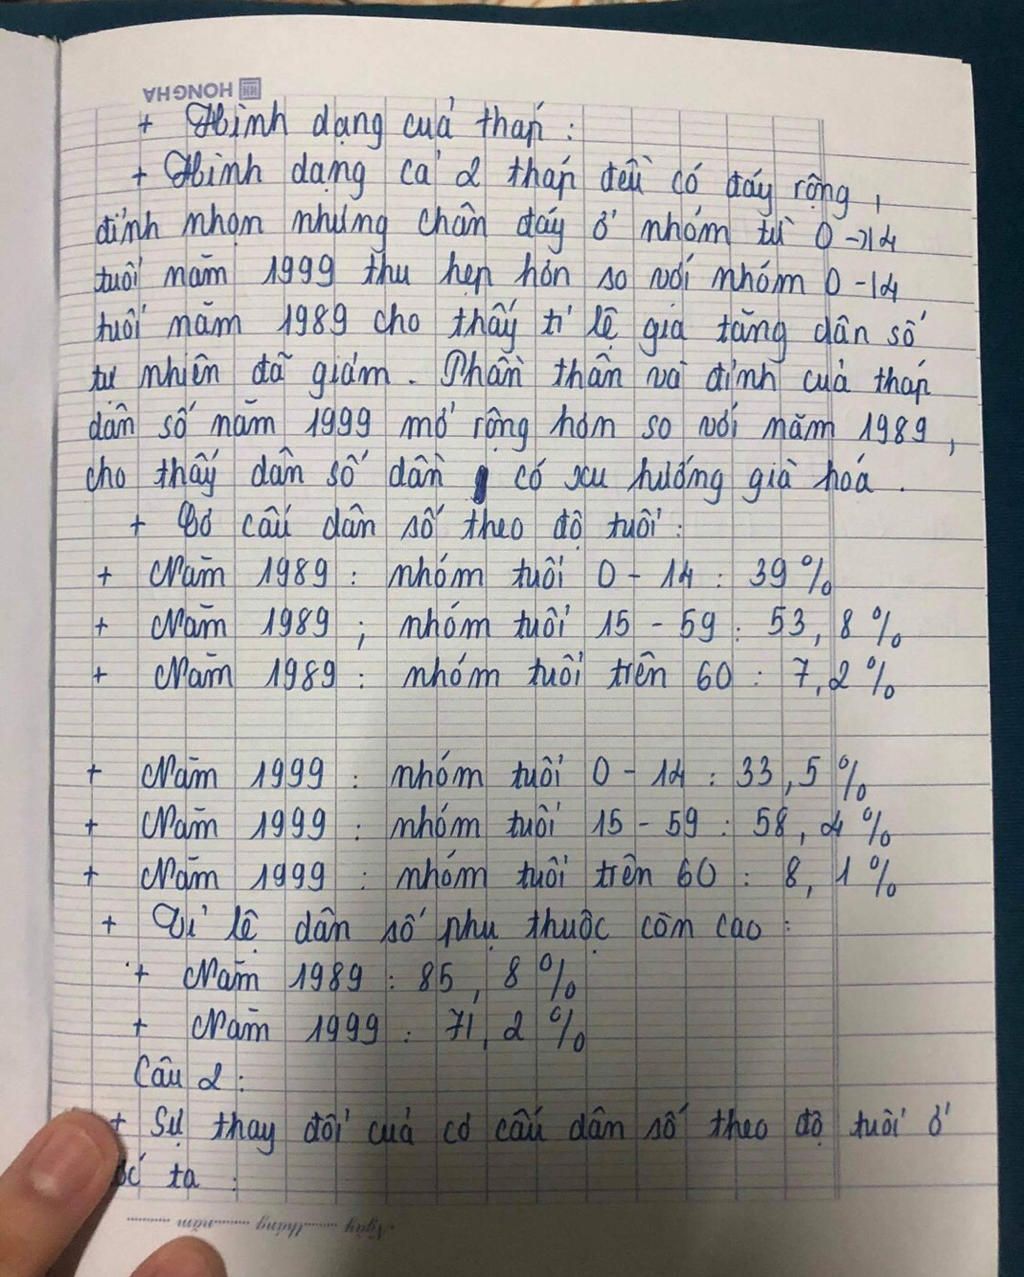 HONG HA
+ Hình dạng của tháp :
+ Hình dạng cả 2 tháp đều có đáy rộng,
đỉnh nhọn nhưng chân đáy ở nhóm từ 0-14
tuổi năm 1999 thu hẹp hơn so với nhóm 0-14
tuổi năm 1989 cho thấy tỉ lệ gia tăng dân số
tự nhiên đã giảm. Phần thân và đỉnh của tháp
dân số năm 1999 mở rộng hơn so với năm 1989,
cho thấy dân số dần có xu hướng già hoá.
+ Cơ cấu dân số theo độ tuổi :
+ Năm 1989 : nhóm tuổi 0 - 14 : 39%
+ Năm 1989 ; nhóm tuổi 15 - 59 : 53,8%
+ Năm 1989 : nhóm tuổi trên 60 : 7,2%
+ Năm 1999 : nhóm tuổi 0 - 14 : 33,5%
+ Năm 1999 : nhóm tuổi 15 - 59 : 58,4%
+ Năm 1999 : nhóm tuổi trên 60 : 8,1%
+ Tỉ lệ dân số phụ thuộc còn cao :
+ Năm 1989 : 85,8%
+ Năm 1999 : 71,2%
Câu 2 :
+ Sự thay đổi của cơ cấu dân số theo độ tuổi ở
ta :
Ngày ........ tháng ........ năm ........